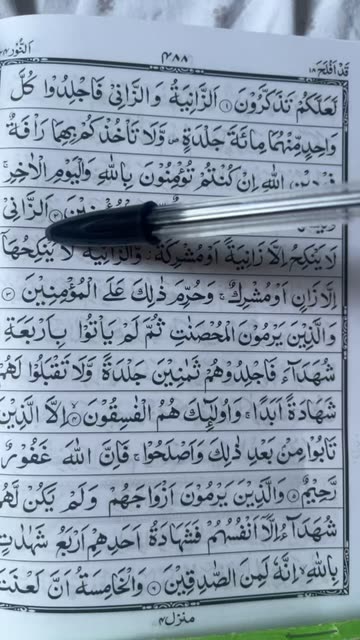 قد افلح ١٨ ٤٨٨ النور ٢٤
لَعَلَّكُمْ تَذَكَّرُوْنَ ۝۱ اَلزَّانِيَةُ وَالزَّانِيْ فَاجْلِدُوْا كُلَّ
وَاحِدٍ مِّنْهُمَا مِائَةَ جَلْدَةٍ ۪ وَّلَا تَاْخُذْكُمْ بِهِمَا رَاْفَةٌ
فِيْ دِيْنِ اللّٰهِ اِنْ كُنْتُمْ تُؤْمِنُوْنَ بِاللّٰهِ وَالْيَوْمِ الْاٰخِرِ ۚ
۝۲ اَلزَّانِيْ
لَا يَنْكِحُ اِلَّا زَانِيَةً اَوْ مُشْرِكَةً ؗ وَّالزَّانِيَةُ لَا يَنْكِحُهَاۤ
اِلَّا زَانٍ اَوْ مُشْرِكٌ ۚ وَحُرِّمَ ذٰلِكَ عَلَى الْمُؤْمِنِيْنَ ۝۳
وَالَّذِيْنَ يَرْمُوْنَ الْمُحْصَنٰتِ ثُمَّ لَمْ يَاْتُوْا بِاَرْبَعَةِ
شُهَدَآءَ فَاجْلِدُوْهُمْ ثَمٰنِيْنَ جَلْدَةً وَّلَا تَقْبَلُوْا لَهُمْ
شَهَادَةً اَبَدًا ۚ وَاُولٰٓئِكَ هُمُ الْفٰسِقُوْنَ ۝۴ اِلَّا الَّذِيْنَ
تَابُوْا مِنْ بَعْدِ ذٰلِكَ وَاَصْلَحُوْا ۚ فَاِنَّ اللّٰهَ غَفُوْرٌ
رَّحِيْمٌ ۝۵ وَالَّذِيْنَ يَرْمُوْنَ اَزْوَاجَهُمْ وَلَمْ يَكُنْ لَّهُمْ
شُهَدَآءُ اِلَّاۤ اَنْفُسُهُمْ فَشَهَادَةُ اَحَدِهِمْ اَرْبَعُ شَهٰدٰتٍ
بِاللّٰهِ ۙ اِنَّهٗ لَمِنَ الصّٰدِقِيْنَ ۝۶ وَالْخَامِسَةُ اَنَّ لَعْنَتَ
منزل ٤